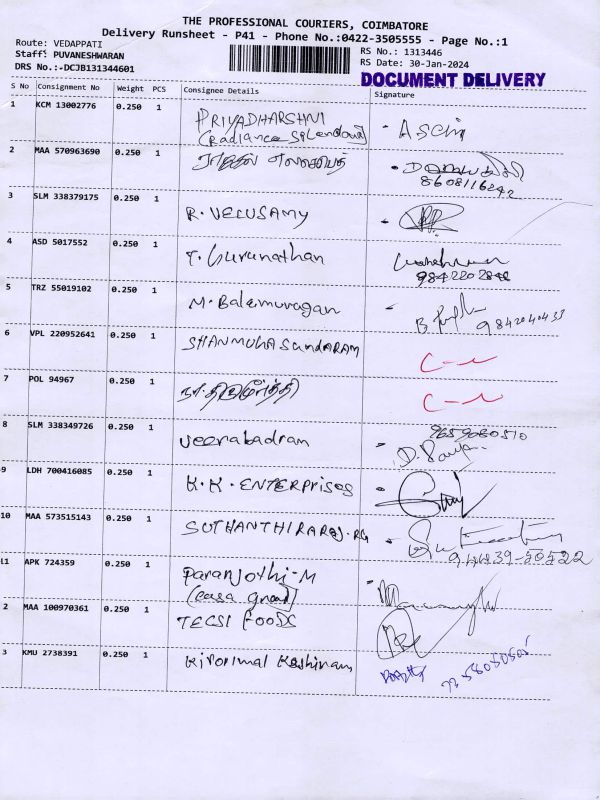 THE PROFESSIONAL COURIERS, COIMBATORE
Delivery Runsheet - P41 - Phone No.:0422-3505555 - Page No.:1
Route: VEDAPPATI
Staff: PUVANESHWARAN
RS No.: 1313446
DRS No.:-DCJB131344601
RS Date: 30-Jan-2024
DOCUMENT DELIVERY
S No Consignment No Weight PCS Consignee Details Signature
1 KCM 13002776 0.250 1 PRIYADHARSHNI
(Radiance Splendour)
2 MAA 570963690 0.250 1
8608116242
3 SLM 338379175 0.250 1 R. VELUSAMY
4 ASD 5017552 0.250 1 T. Gurunathan
5 TRZ 55019102 0.250 1 M. Balamuragan
6 VPL 220952641 0.250 1 SHANMUGA SundARAM
7 POL 94967 0.250 1 நா. திருமூர்த்தி
8 SLM 338349726 0.250 1 Veerabadram
9659080510
9 LDH 700416085 0.250 1 K.K. ENTERPRISES
10 MAA 573515143 0.250 1 SUTHANTHIRARAJ. RG
94439-50522
11 APK 724359 0.250 1 Paranjothi-M
(casa grand)
2 MAA 100970361 0.250 1 TECSI FOODS
3 KMU 2738391 0.250 1 Kirorimal Kashiram